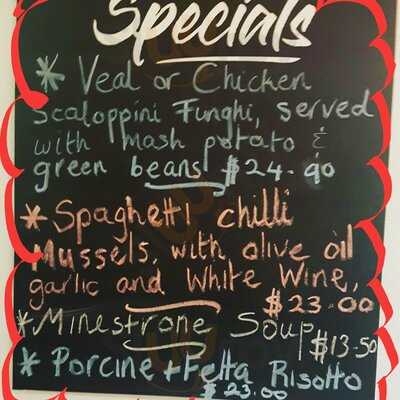 Specials
* Veal or Chicken
Scaloppini Funghi, served
with mash potato &
green beans $24.90
* Spaghetti chilli
Mussels, with olive oil
garlic and White Wine,
$23.00
* Minestrone Soup $13.50
* Porcine + Fetta Risotto
$23.00